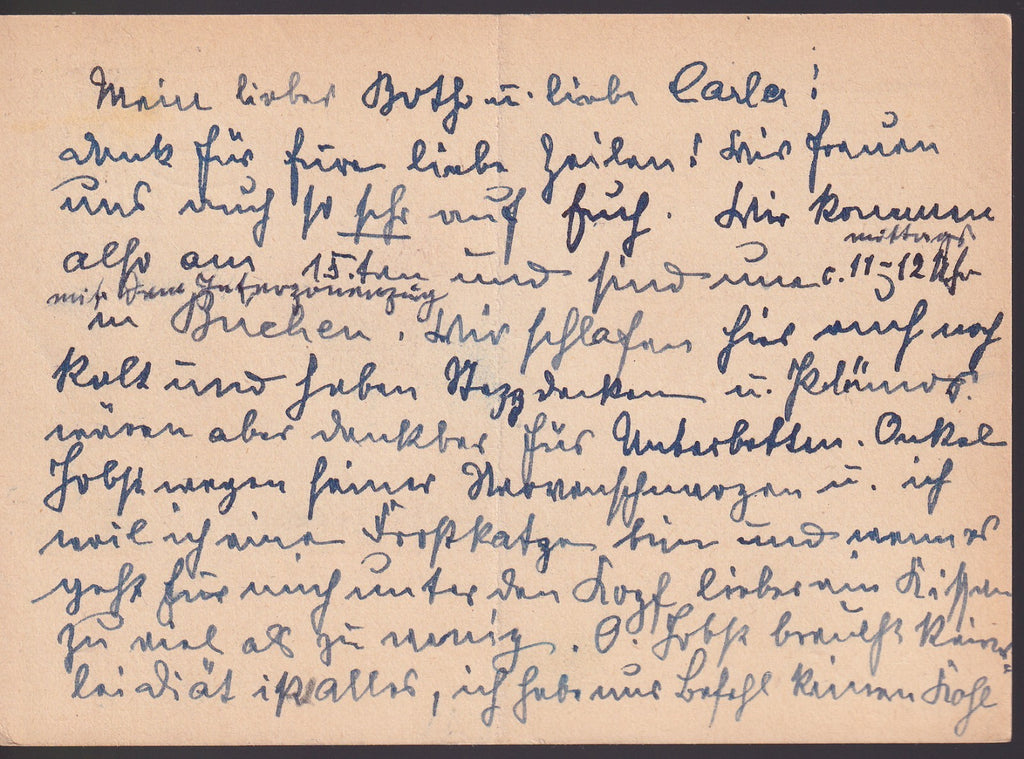 Mein lieber Botho u. liebe Carla!
Dank für Eure liebe Zeilen! Wir freuen
uns auch so sehr auf Euch. Wir kommen
mittags
also am 15.ten und sind um c. 11-12 Uhr
mit dem Interzonenzug
in Buchen. Wir schlafen hier auch noch
kalt und haben Steppdecken u. Plümos.
wären aber dankbar für Unterbetten. Onkel
Jobst wegen seiner Nervenschmerzen u. ich
weil ich eine Frostkatze bin und wenn es
geht für mich unter den Kopf lieber ein Kissen
zu viel als zu wenig. O. Jobst braucht keiner-
lei Diät ißt alles, ich habe nur Befehl keinen Kohl